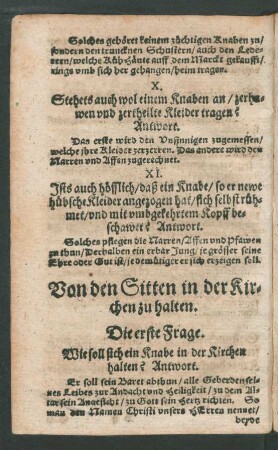 Solches gehöret keinem züchtigen Knaben zu/
sondern den truncknen Schustern/ auch den Lede-
rern/ welche Küh Häute auff dem Marckt gekaufft/
rings vmb sich her gehangen/ heim tragen.
X.
Stehets auch wol einem Knaben an/ zerha-
wen vnd zertheilte Kleider tragen?
Antwort.
Das erste wird den Vnsinnigen zugemessen/
welche jhre Kleider zerzerren. Das andere wird den
Narren vnd Affen zugerechnet.
XI.
Ists auch höfflich/ daß ein Knabe/ so er newe
hübsche Kleider angezogen hat/ sich selbst rüh-
met/ vnd mit vmbgekehrtem Kopff be-
schawet? Antwort.
Solches pflegen die Narren/ Affen vnd Pfawen
zu thun/ Derhalben ein erbar Jung/ je grösser seine
Ehre oder Gut ist/ je demütiger er sich erzeigen soll.
Von den Sitten in der Kir-
chen zu halten.
Die erste Frage.
Wie soll sich ein Knabe in der Kirchen
halten? Antwort.
Er soll sein Baret abthun/ alle Geberden sei-
nes Leibes zur Andacht vnd Heiligkeit/ zu dem Al-
tar sein Angesicht/ zu Gott sein Hertz richten. So
man den Namen Christi vnsers HErren nennet/
beyde